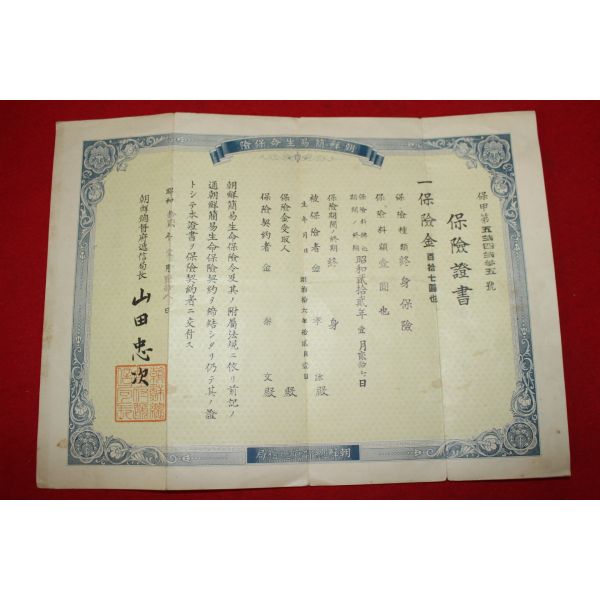 朝鮮簡易生命保險
保甲第五弐四弐参五號
保險證書
一保險金百拾七圓也
保險種類終身保險
保險料額壹圓也
保險料拂込期間ノ終期昭和貳拾貳年壹月貳拾七日
保險期間ノ終期終身
被保險者金
殿
生年月日明治拾六年拾貳月壹日
保險金受取人
殿
保險契約者金泰文殿
朝鮮簡易生命保險令及其ノ附屬法規ニ依リ前記ノ
通朝鮮簡易生命保險契約ヲ締結シタリ仍テ其ノ證
トシテ本證書ヲ保險契約者ニ交付ス
昭和
年
月
日
朝鮮總督府遞信局長
山田忠次